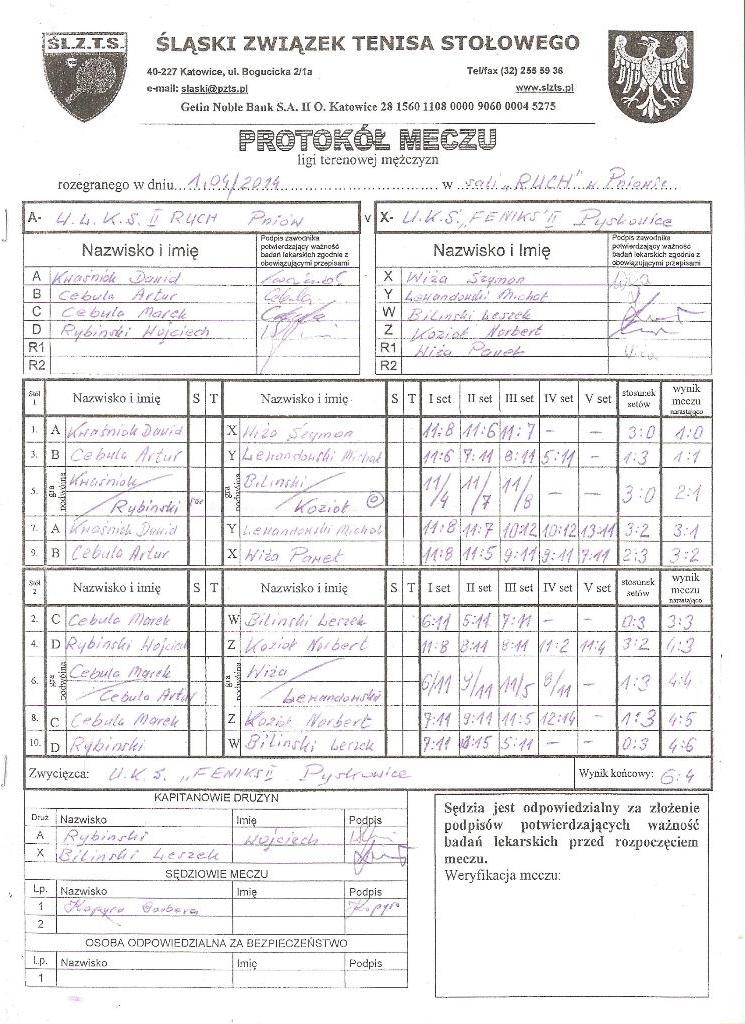 ŚL.Z.T.S.
ŚLĄSKI ZWIĄZEK TENISA STOŁOWEGO
40-227 Katowice, ul. Bogucicka 2/1a Tel/fax (32) 255 59 36
e-mail: slaski@pzts.pl www.slzts.pl
Getin Noble Bank S.A. II O. Katowice 28 1560 1108 0000 9060 0004 5275
PROTOKÓŁ MECZU
ligi terenowej mężczyzn
rozegranego w dniu 1.04/2014 w sali „RUCH” w Pniowie
A- U.L.K.S. II RUCH Pniów v X- U.K.S. „FENIKS” II Pyskowice
Nazwisko i imię Podpis zawodnika potwierdzający ważność badań lekarskich zgodnie z obowiązującymi przepisami Nazwisko i Imię Podpis zawodnika potwierdzający ważność badań lekarskich zgodnie z obowiązującymi przepisami
A Kwaśniok Dawid X Wiża Szymon
B Cebula Artur Y Lewandowski Michał
C Cebula Marek W Biliński Leszek
D Rybiński Wojciech Z Kozioł Norbert
R1 R1 Wiża Paweł
R2 R2
Stół 1 Nazwisko i imię S T Nazwisko i imię S T I set II set III set IV set V set stosunek setów wynik meczu narastająco
1. A Kwaśniok Dawid X Wiża Szymon 11:8 11:6 11:7 – – 3:0 1:0
3. B Cebula Artur Y Lewandowski Michał 11:6 7:11 8:11 5:11 – 1:3 1:1
5. gra podwójna Kwaśniok/Rybiński gra podwójna Biliński/Kozioł 11/4 11/7 11/8 – – 3:0 2:1
7. A Kwaśniok Dawid Y Lewandowski Michał 11:8 11:7 10:12 10:12 13:11 3:2 3:1
9. B Cebula Artur X Wiża Paweł 11:8 11:5 9:11 9:11 7:11 2:3 3:2
Stół 2 Nazwisko i imię S T Nazwisko i imię S T I set II set III set IV set V set stosunek setów wynik meczu narastająco
2. C Cebula Marek W Biliński Leszek 6:11 5:11 7:11 – – 0:3 3:3
4. D Rybiński Wojciech Z Kozioł Norbert 11:8 8:11 8:11 11:2 11:4 3:2 4:3
6. gra podwójna Cebula Marek/Cebula Artur gra podwójna Wiża/Lewandowski 6/11 9/11 11/5 8/11 – 1:3 4:4
8. C Cebula Marek Z Kozioł Norbert 7:11 9:11 11:5 12:14 – 1:3 4:5
10. D Rybiński W Biliński Leszek 7:11 13:15 5:11 – – 0:3 4:6
Zwycięzca: U.K.S. „FENIKS II” Pyskowice Wynik końcowy: 6:4
KAPITANOWIE DRUŻYN
Druż Nazwisko Imię Podpis
A Rybiński Wojciech
X Biliński Leszek
SĘDZIOWIE MECZU
Lp. Nazwisko Imię Podpis
1 Kopyra Barbara Kopyra
2
OSOBA ODPOWIEDZIALNA ZA BEZPIECZEŃSTWO
Lp. Nazwisko Imię Podpis
1
Sędzia jest odpowiedzialny za złożenie
podpisów potwierdzających ważność
badań lekarskich przed rozpoczęciem
meczu.
Weryfikacja meczu: